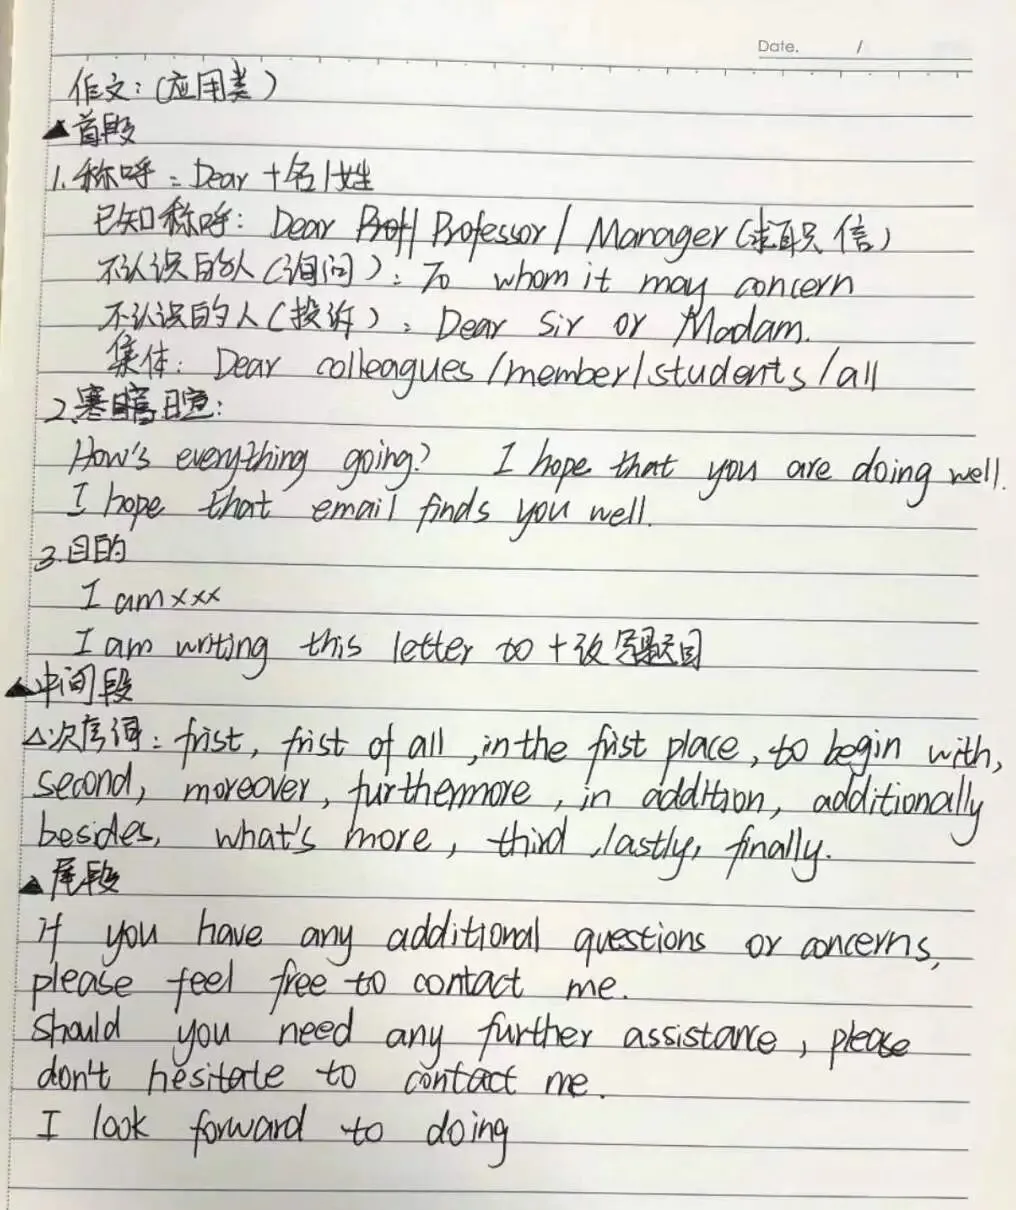 Date. /
作文:(应用类)
▲首段
1.称呼:Dear +名/姓
已知称呼: Dear Prof/ Professor/ Manager(求职信)
不认识的人(询问): To whom it may concern
不认识的人(投诉): Dear Sir or Madam.
集体: Dear colleagues/member/students/all
2.寒暄:
How's everything going? I hope that you are doing well.
I hope that email finds you well.
3.目的
I am xxx
I am writing this letter to +改写题目
▲中间段
△次序词: frist, frist of all, in the frist place, to begin with,
second, moreover, furthermore, in addition, additionally
besides, what's more, third, lastly, finally.
▲尾段
if you have any additional questions or concerns,
please feel free to contact me.
should you need any further assistance, please
don't hesitate to contact me.
I look forward to doing